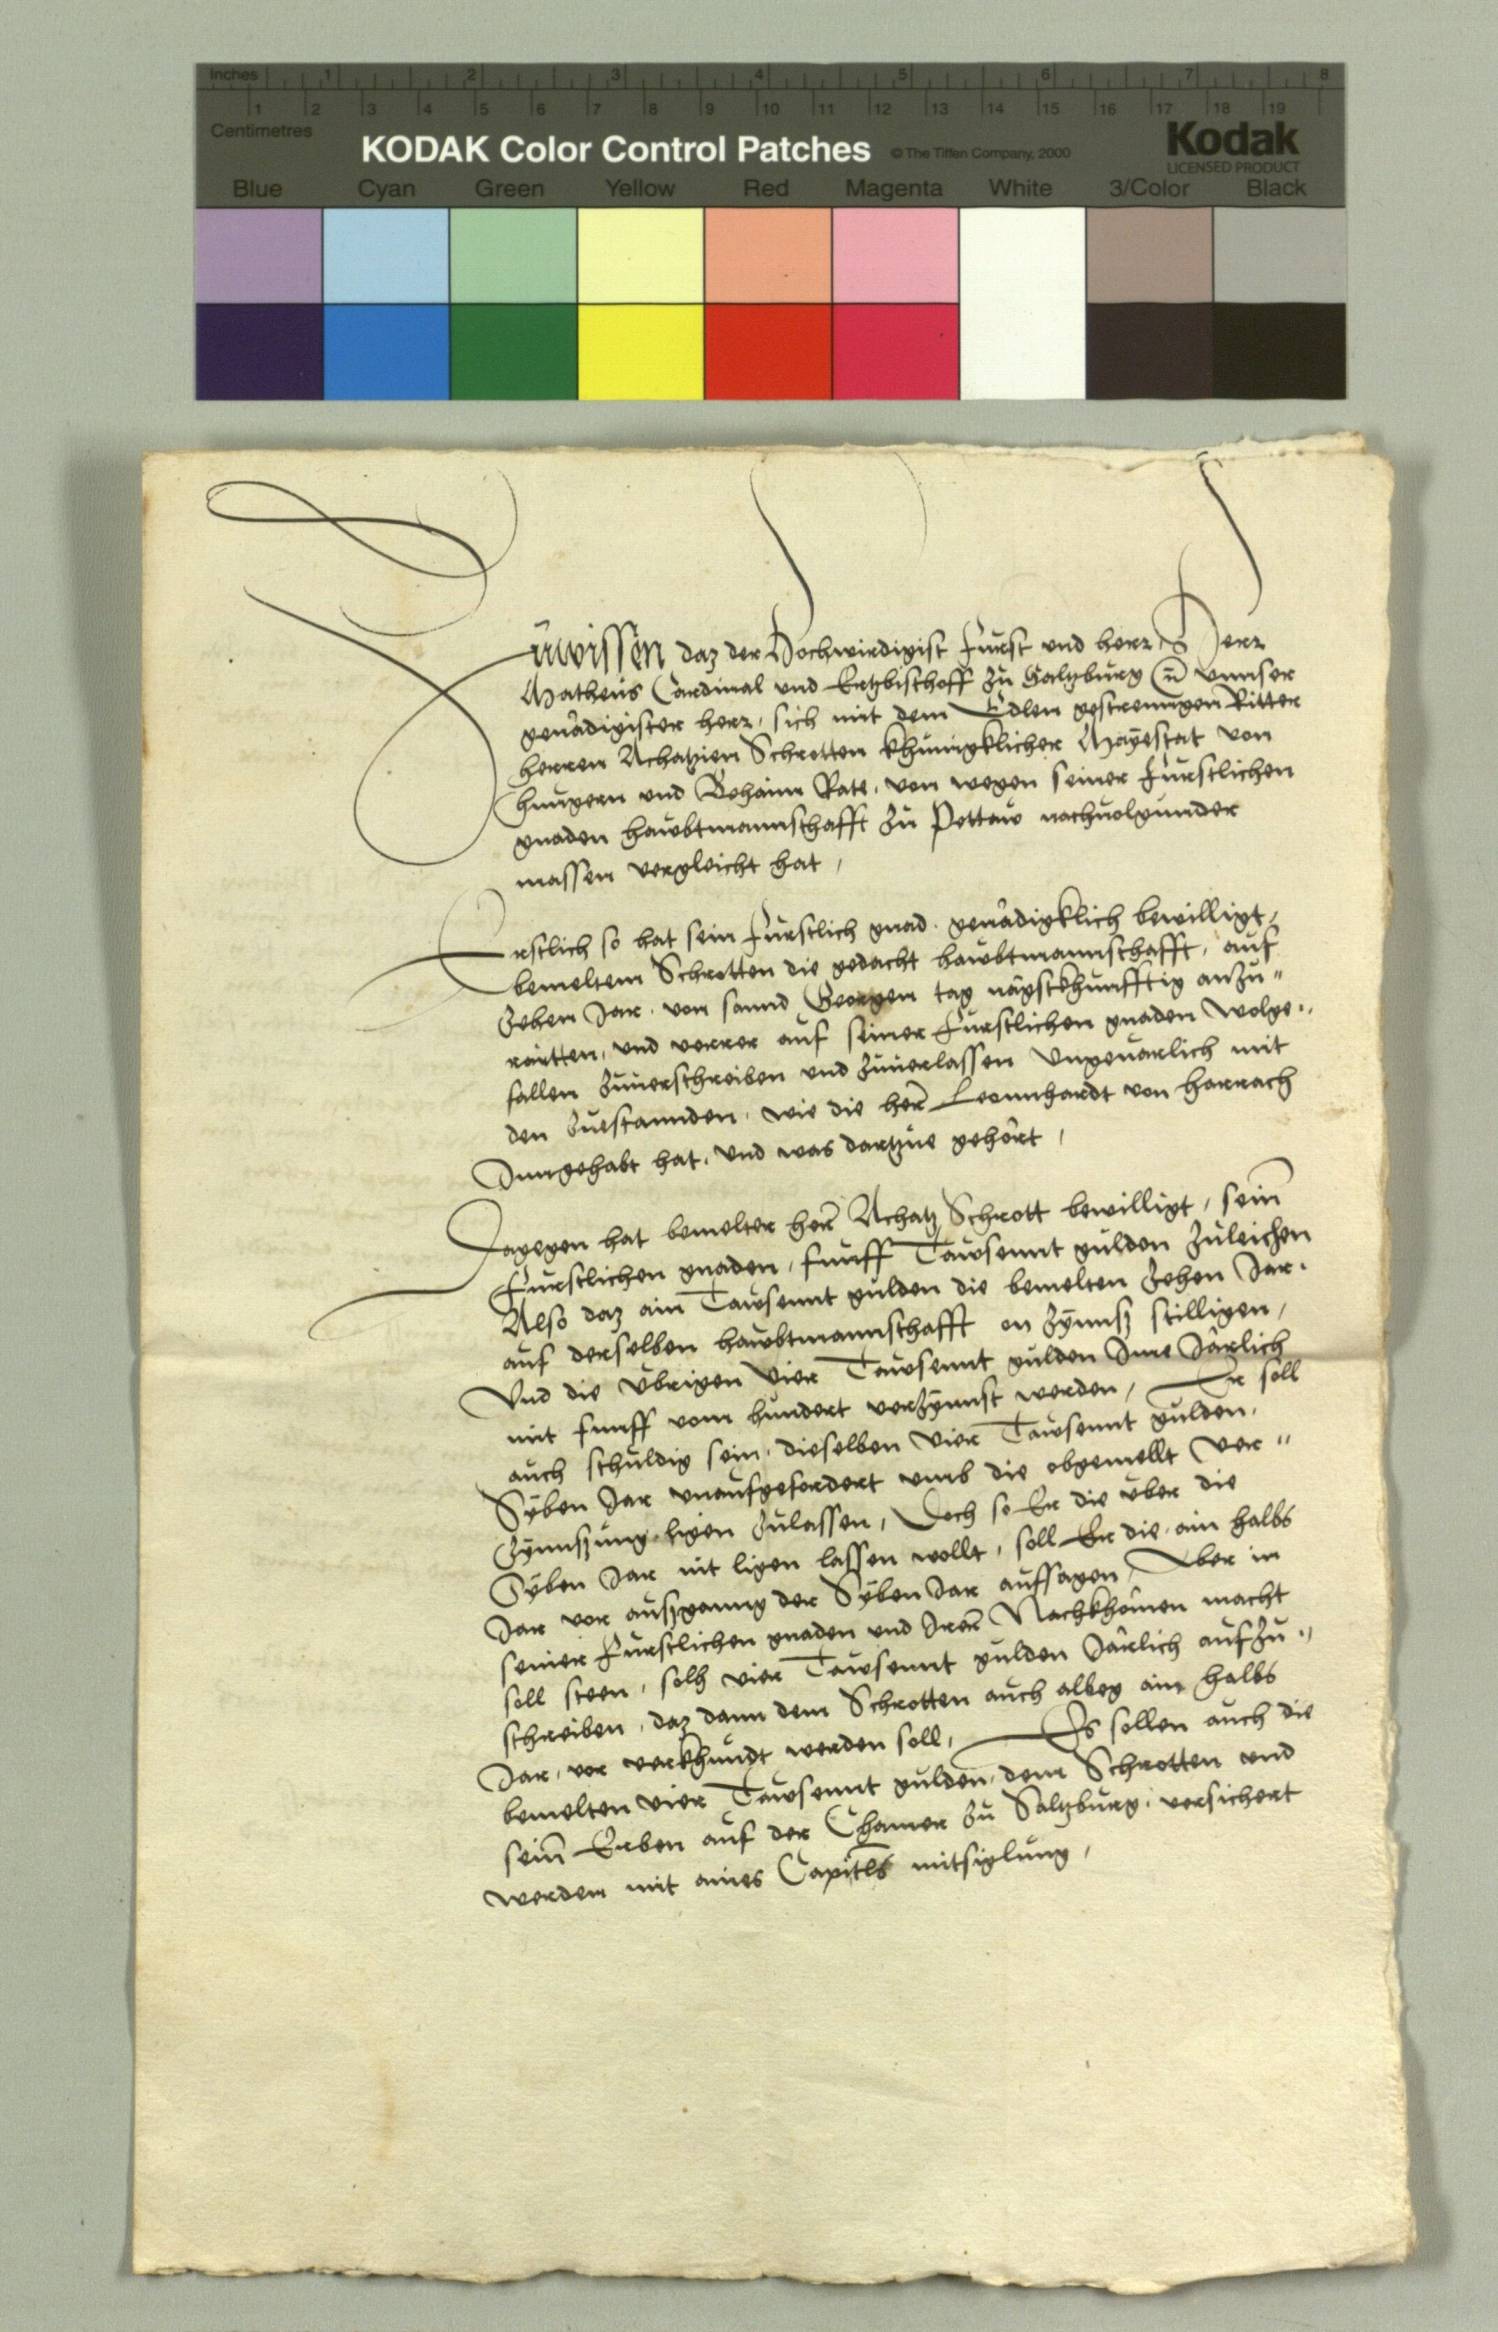 Inches 1 2 3 4 5 6 7 8
1 2 3 4 5 6 7 8 9 10 11 12 13 14 15 16 17 18 19
Centimetres
KODAK Color Control Patches © The Tiffen Company, 2000 Kodak
LICENSED PRODUCT
Blue Cyan Green Yellow Red Magenta White 3/Color Black
Zuwissen daz der Hochwirdigist Fürst und herr, Herr
Matheus Cardinal und Ertzbischoff zu Saltzburg unnser
genådigister herr, sich mit dem Edlen gestrenngen Ritter
herren Achatzien Schrotten khünigklicher Mayestat von
Hungern und Behaim Rate, von wegen seiner Fürstlichen
gnaden hawbtmannschafft zu Pettaw nachuolgunder
massen vergleicht hat,
Erstlich so hat sein Fürstlich gnad genådigklich bewilligt,
bemeltem Schrotten die gedacht hawbtmannschafft, auf
Zehen Jar von sannd Georgen tag nägstkhünfftig anzu"
raitten, und verrer auf seiner Fürstlichen gnaden wolge"
fallen Zuuerschreiben und Zuuerlassen Ungeuarlich mit
den Zuestannden, wie die her Leonnhardt von Harrach
Inngehabt hat, und was dartzue gehört,
Dagegen hat bemelter her Achatz Schrott bewilligt, sein
Fürstlichen gnaden, fünff Tawsennt gulden Zuleichen
Also daz ain Tawsennt gulden die bemelten Zehen Jar
auf derselben hawbtmannschafft on Zynnsz stilligen,
Und die übrigen vier Tawsennt gulden Ime Järlich
mit fünff vom hundert verzynnst werden, Er soll
auch schuldig sein, dieselben vier Tawsennt gulden,
Syben Jar unaufgefordert umb die obgemellt Ver"
Zynnszung ligen Zulassen, Doch so Er die über die
Syben Jar nit ligen lassen wollt, soll Er die ain halbs
Jar vor auszganng der Syben Jar aufsagen, Aber in
seiner Fürstlichen gnaden und Irer Nachkhomen macht
soll steen, solh vier Tawsennt gulden Järlich aufzu"
schreiben, daz dann dem Schrotten auch albeg ain halbs
Jar, vor verkhundt werden soll, Es sollen auch die
bemelten vier Tawsennt gulden, dem Schrotten und
sein Erben auf der Chamer zu Saltzburg, versichert
werden mit aines Capitls mitsiglung,